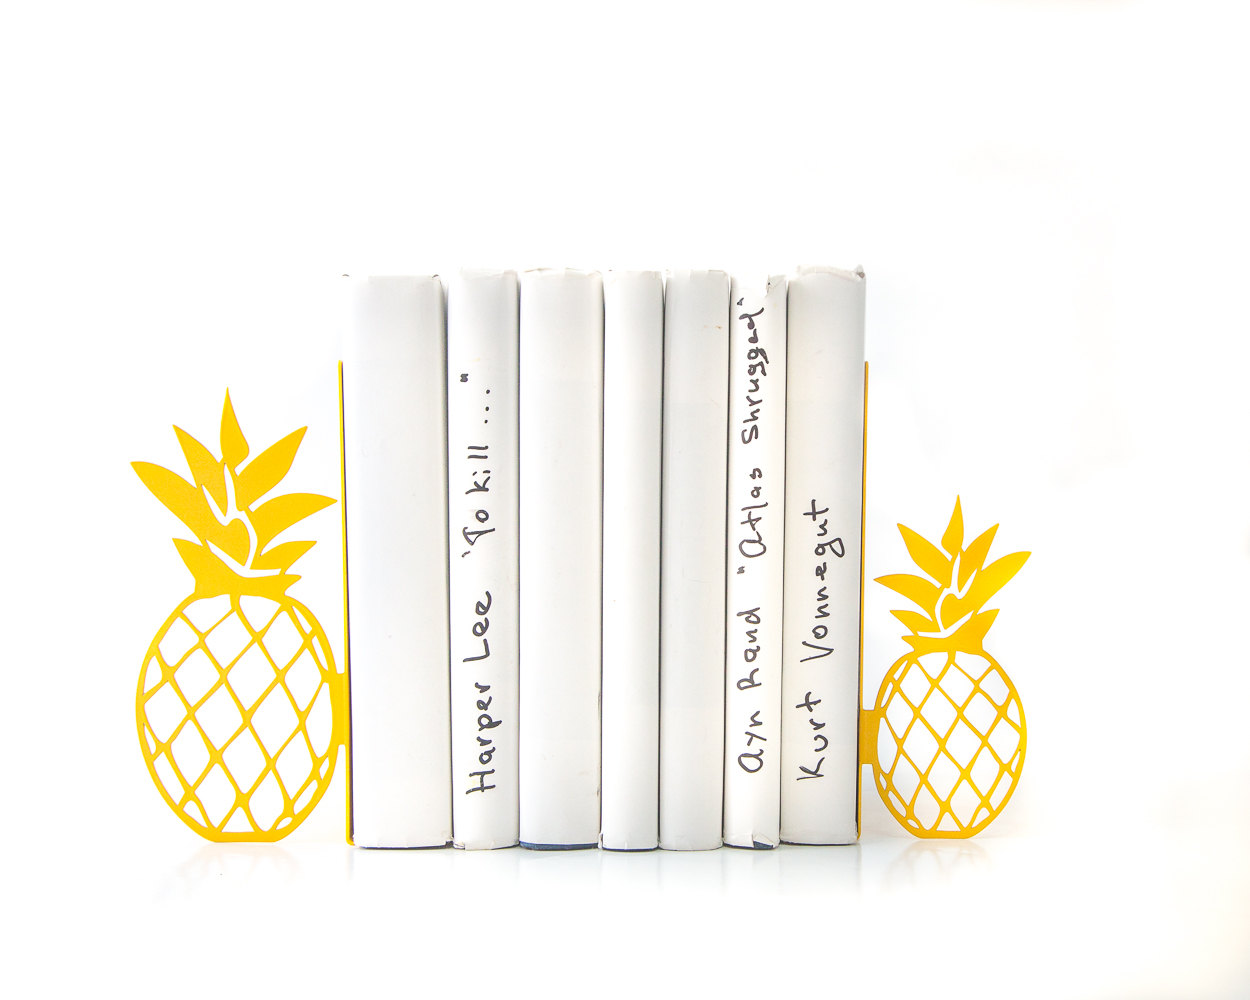 Harper Lee "To kill ..."
Ayn Rand "Atlas Shrugged"
Kurt Vonnegut